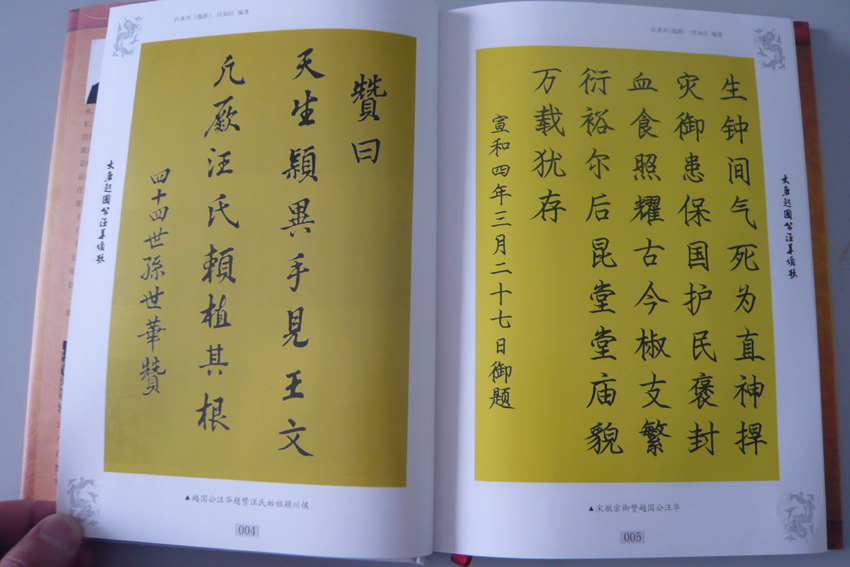 贊曰
天生穎異手見王文
凢厥汪氏賴植其根
四十四世孫世華贊
大唐越國公汪華頌歌
▲越国公汪华题赞汪氏始祖颖川侯
004
编著
生钟间气死为直神捍
灾御患保国护民褒封
血食照耀古今椒支繁
衍裕尔后昆堂堂庙貌
万载犹存
宣和四年三月二十七日御题
大唐越國公汪華頌歌
▲宋徽宗御赞越国公汪华
005
编著